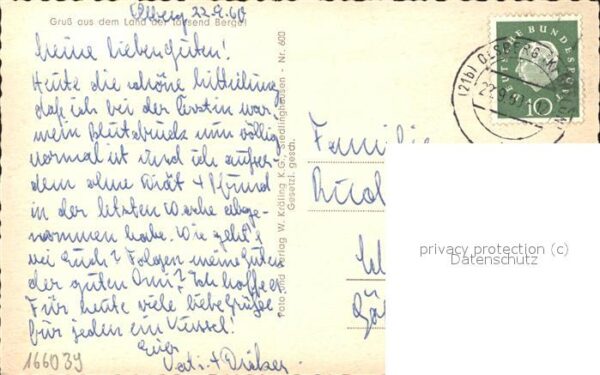 Olsberg 22.9.60
Gruß aus dem Land der tausend Berge!
Meine lieben Guten!
Heute die schöne Mitteilung
daß ich bei der Ärztin war
mein Blutdruck nun völlig
normal ist und ich außer-
dem ohne Diät 4 Pfund
in der letzten Woche abge-
nommen habe. Wie geht's
bei Euch? Folgen meine Guten
der guten Omi? Ich hoffe es
Für heute viele liebe Grüße
für jeden ein Küssel!
Euer
Vati +
166039
Foto und Verlag W. Kräling K.G., Siedlinghausen · Nr. 600
Gesetzl. gesch.
Familie
(21b) OLSBERG
22.9.60
DEUTSCHE BUNDESPOST
10
privacy protection (c)
Datenschutz